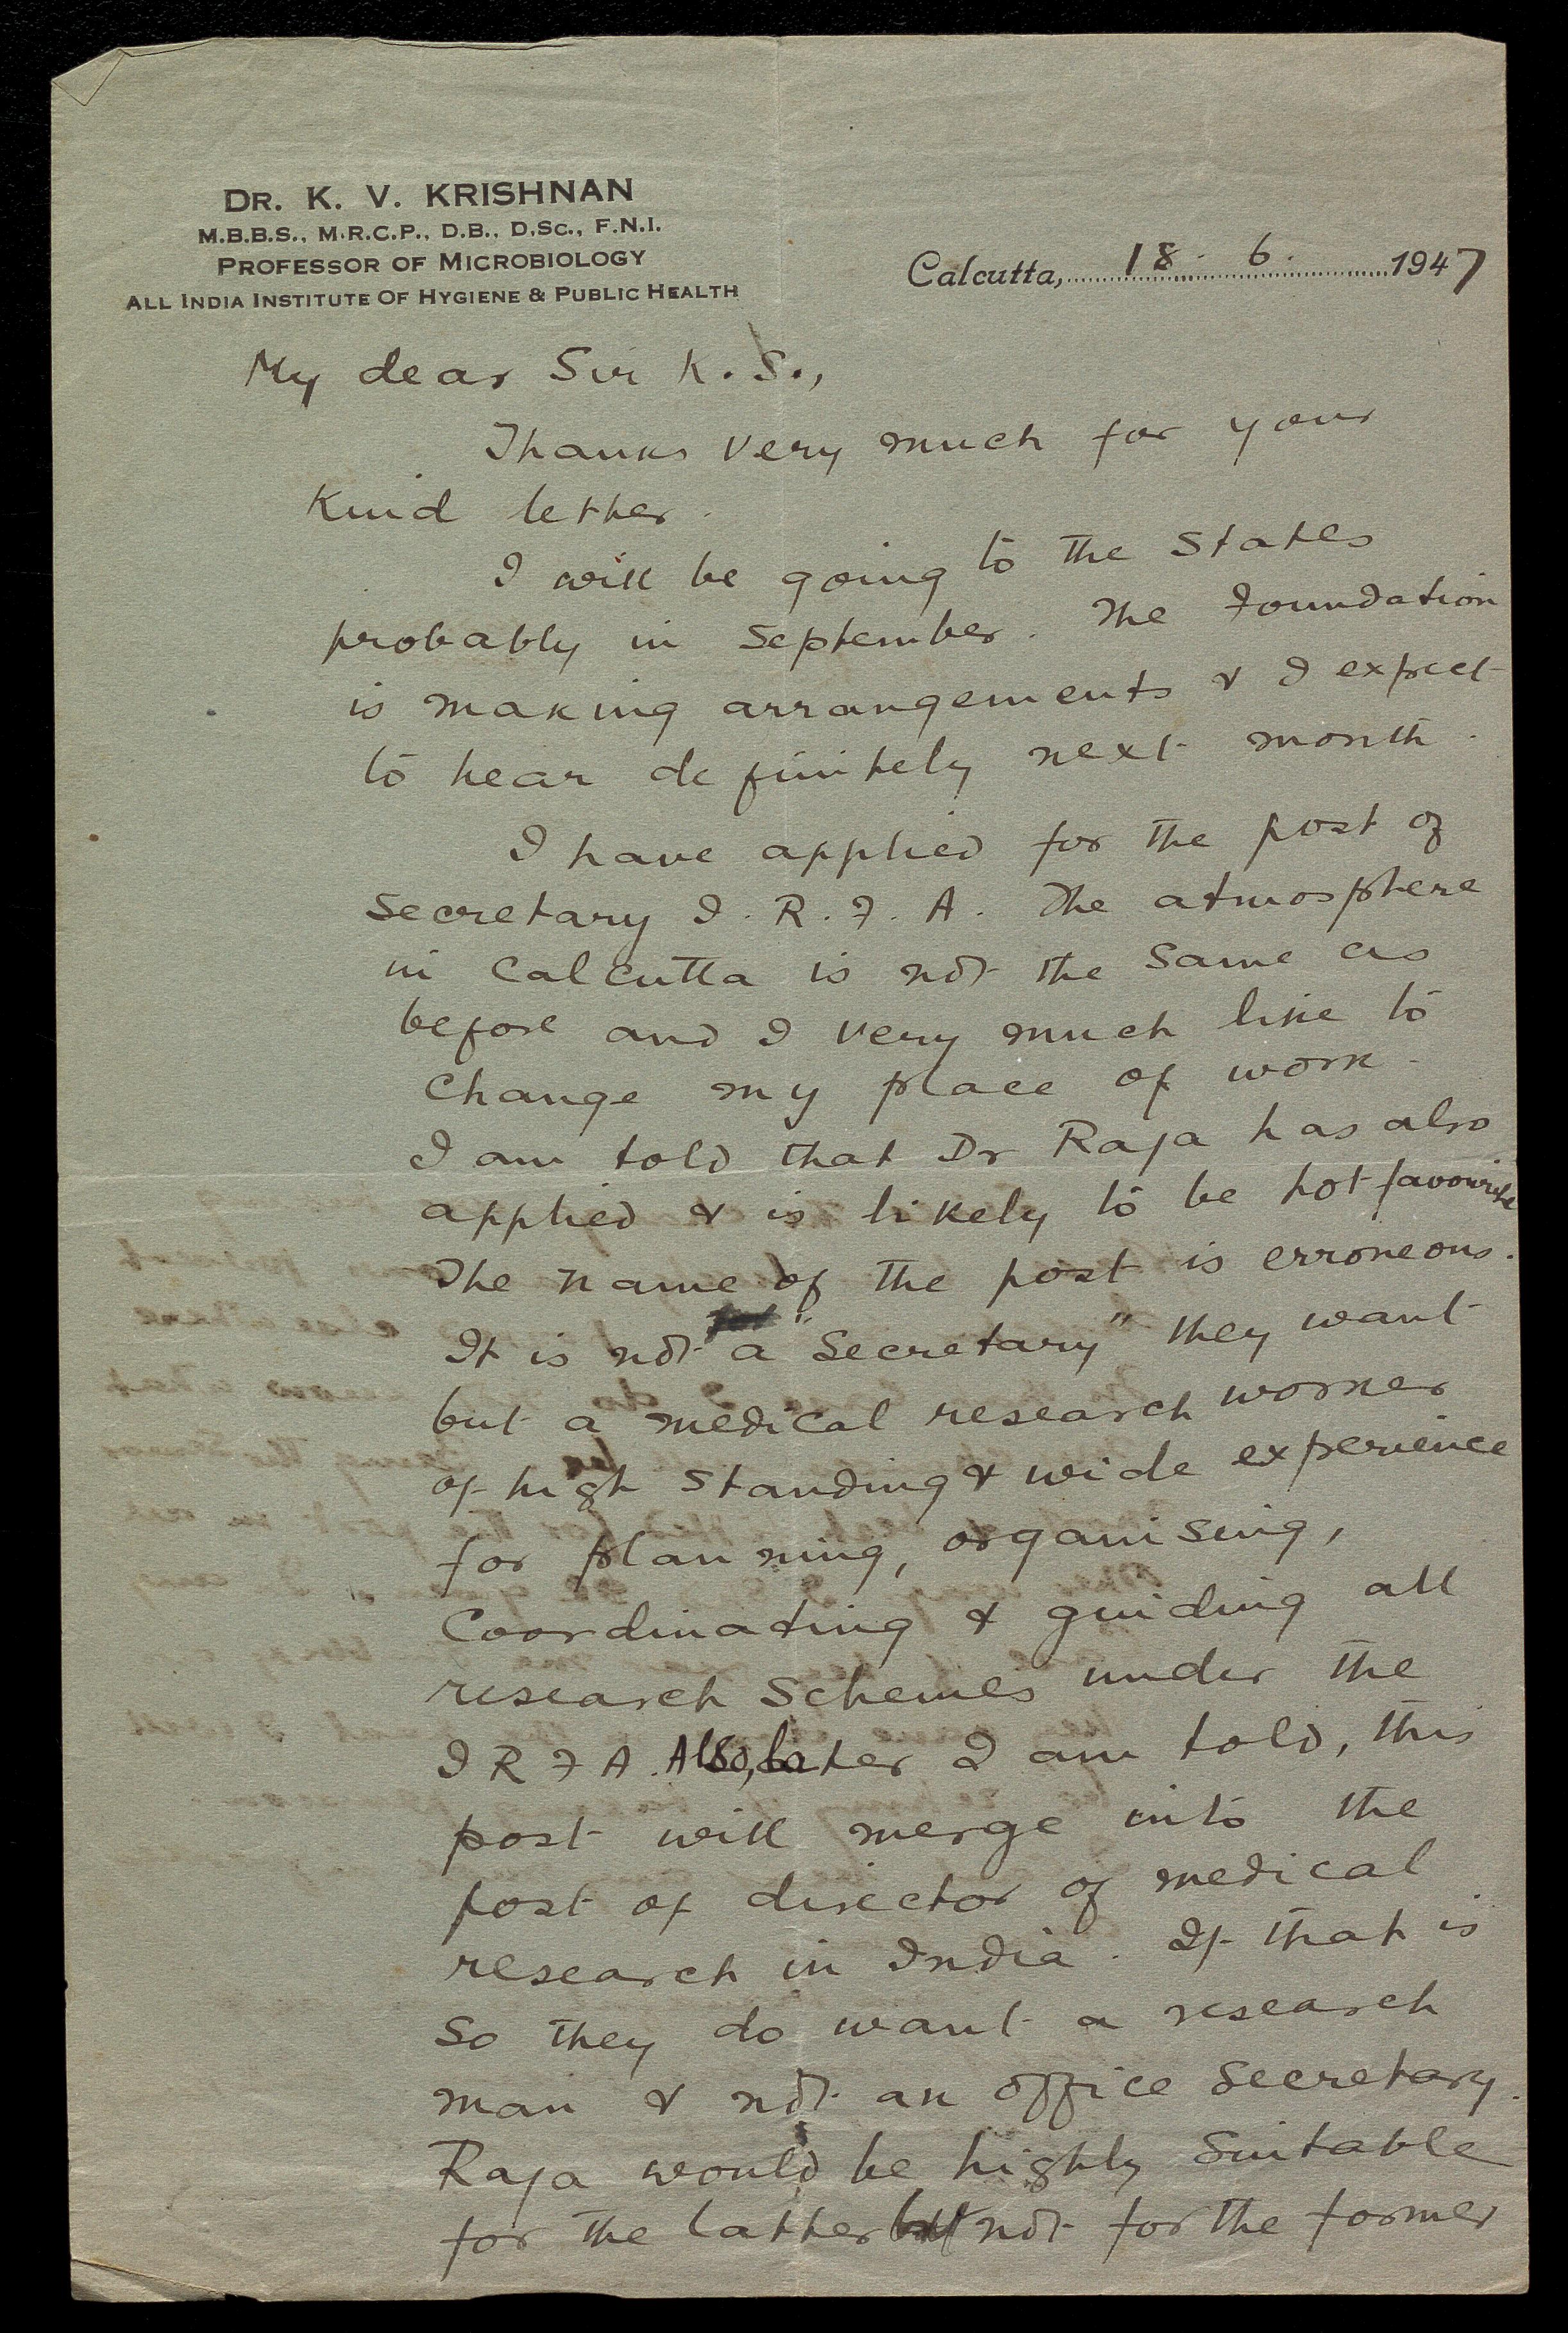 DR. K. V. KRISHNAN
M.B.B.S., M.R.C.P., D.B., D.Sc., F.N.I.
PROFESSOR OF MICROBIOLOGY
ALL INDIA INSTITUTE OF HYGIENE & PUBLIC HEALTH
Calcutta, 18. 6. 1947
My dear Sir K.S.,
Thanks very much for your
kind letter.
I will be going to the States
probably in September. The Foundation
is making arrangements & I expect
to hear definitely next month.
I have applied for the post of
Secretary I. R. F. A. The atmosphere
in Calcutta is not the same as
before and I very much like to
change my place of work.
I am told that Dr Raja has also
applied & is likely to be hot favourite
The name of the post is erroneous.
It is not a "Secretary" they want
but a medical research worker
of high standing & wide experience
for planning, organising,
coordinating & guiding all
research schemes under the
I R F A. Also, later I am told, this
post will merge into the
post of director of medical
research in India. If that is
so they do want a research
man & not an office secretary.
Raja would be highly suitable
for the latter but not for the former